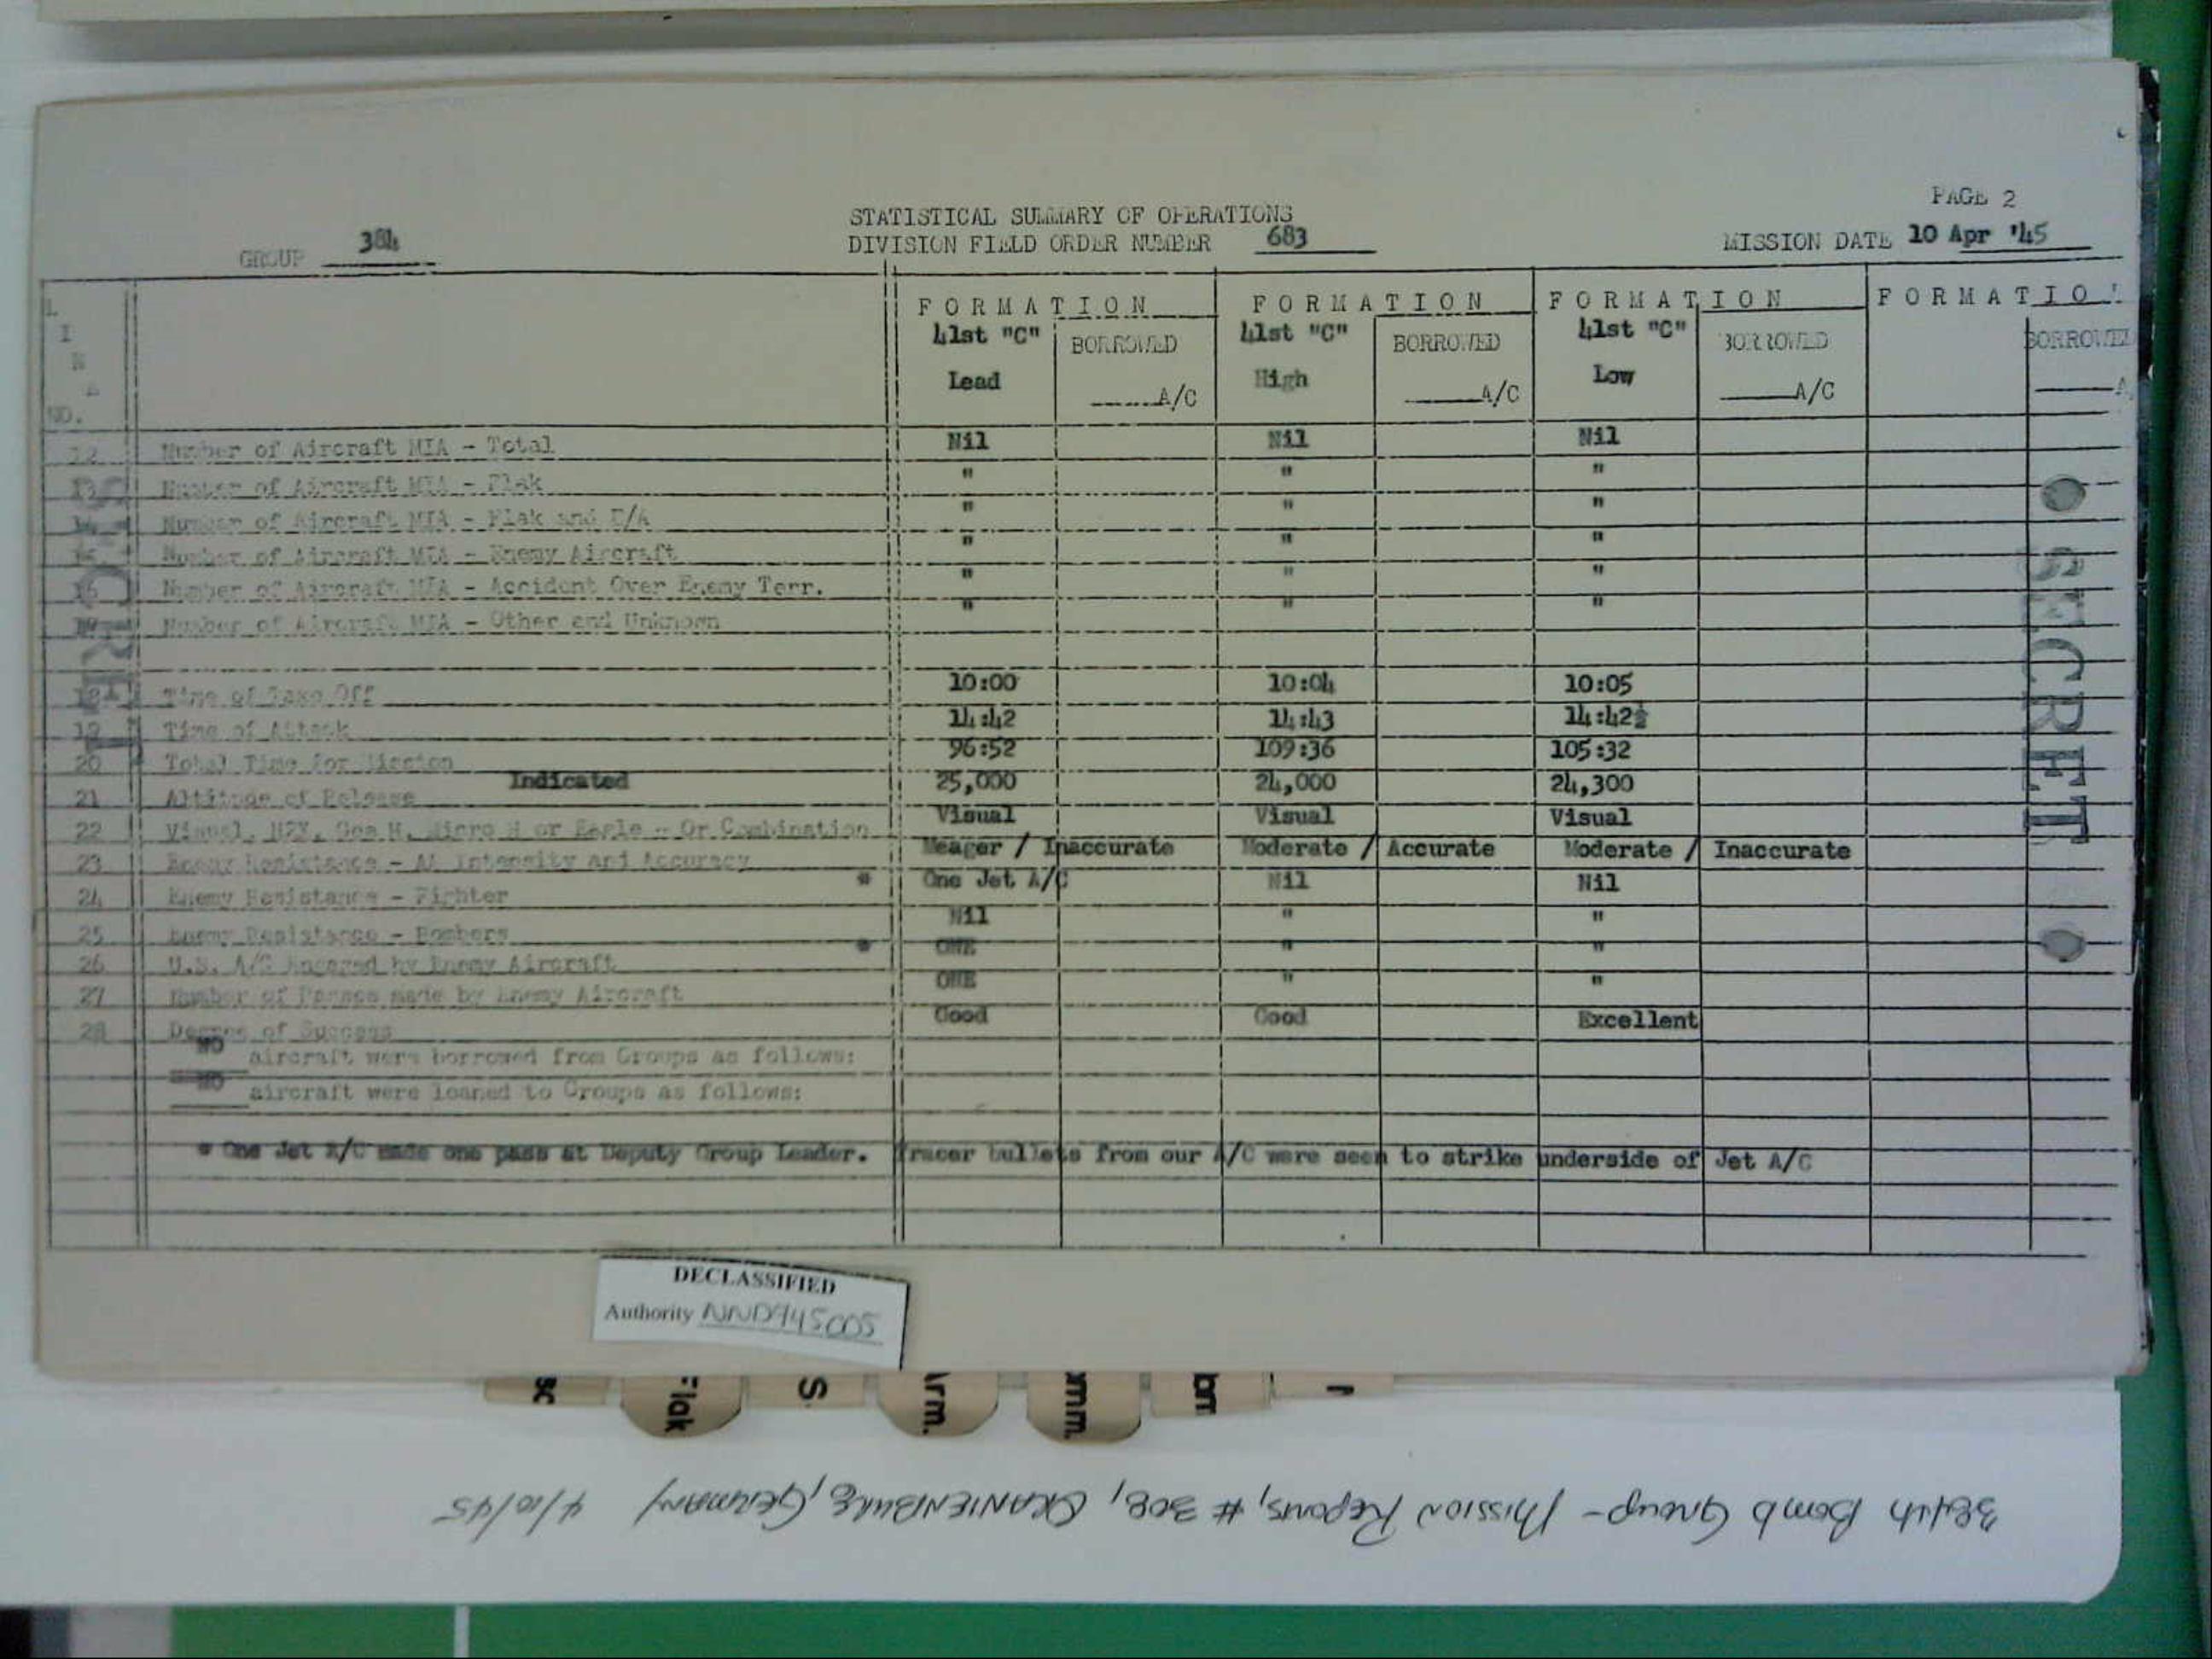 PAGE 2
STATISTICAL SUMMARY OF OPERATIONS
GROUP 384 DIVISION FIELD ORDER NUMBER 683 MISSION DATE 10 Apr '45
LINE NO.
FORMATION FORMATION FORMATION FORMATIO
41st "C" BORROWED 41st "C" BORROWED 41st "C" BORROWED BORROWED
Lead A/C High A/C Low A/C A
12 Number of Aircraft MIA - Total Nil Nil Nil
13 Number of Aircraft MIA - Flak " " "
14 Number of Aircraft MIA - Flak and E/A " " "
15 Number of Aircraft MIA - Enemy Aircraft " " "
16 Number of Aircraft MIA - Accident Over Enemy Terr. " " "
17 Number of Aircraft MIA - Other and Unknown " " "
18 Time of Take Off 10:00 10:04 10:05
19 Time of Attack 14:42 14:43 14:42½
20 Total Time for Mission 96:52 109:36 105:32
21 Altitude of Release Indicated 25,000 24,000 24,300
22 Visual, H2X, Gee H, Micro H or Eagle - Or Combination Visual Visual Visual
23 Enemy Resistance - AA Intensity and Accuracy Meager / Inaccurate Moderate / Accurate Moderate / Inaccurate
24 Enemy Resistance - Fighter * One Jet A/C Nil Nil
25 Enemy Resistance - Bombers Nil " "
26 U.S. A/C Engaged by Enemy Aircraft * ONE " "
27 Number of Passes made by Enemy Aircraft ONE " "
28 Degree of Success Good Good Excellent
NO aircraft were borrowed from Groups as follows:
NO aircraft were loaned to Groups as follows:
* One Jet A/C made one pass at Deputy Group Leader. Tracer bullets from our A/C were seen to strike underside of Jet A/C
SECRET
SECRET
DECLASSIFIED
Authority NND945005
sc Flak S. Arm. omm. bm
384th Bomb Group - Mission Reports, # 308, ORANIENBURG, GERMANY 4/10/45